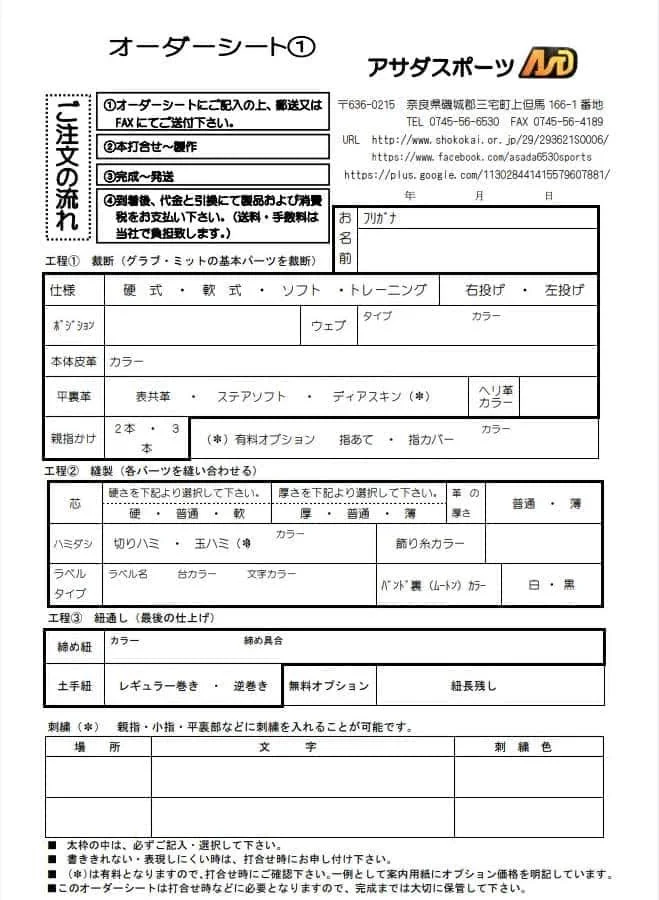 オーダーシート①
アサダスポーツ
ご注文の流れ
①オーダーシートにご記入の上、郵送又は
FAXにてご送付下さい。
②本打合せ～製作
③完成～発送
④到着後、代金と引換にて製品および消費
税をお支払い下さい。（送料・手数料は
当社で負担致します。）
〒636-0215　奈良県磯城郡三宅町上但馬 166-1 番地
TEL 0745-56-6530　FAX 0745-56-4189
URL　http://www.shokokai.or.jp/29/293621S0006/
https://www.facebook.com/asada6530sports
https://plus.google.com/113028441415579607881/
年　月　日
お名前
ﾌﾘｶﾞﾅ
工程①　裁断（グラブ・ミットの基本パーツを裁断）
仕様　硬　式　・　軟　式　・　ソフト　・トレーニング　右投げ　・　左投げ
ﾎﾟｼﾞｼｮﾝ　ウェブ　タイプ　カラー
本体皮革　カラー
平裏革　表共革　・　ステアソフト　・　ディアスキン（＊）　ヘリ革
カラー
親指かけ　２本　・　３
本
（＊）有料オプション　指あて　・　指カバー　カラー
工程②　縫製（各パーツを縫い合わせる）
芯　硬さを下記より選択して下さい。　厚さを下記より選択して下さい。　革の
厚さ　普通　・　薄
硬　・　普通　・　軟　厚　・　普通　・　薄
ハミダシ　切りハミ　・　玉ハミ（＊）　カラー　飾り糸カラー
ラベル
タイプ　ラベル名　台カラー　文字カラー　ﾊﾞﾝﾄﾞ裏（ﾑｰﾄﾝ）ｶﾗｰ　白　・　黒
工程③　紐通し（最後の仕上げ）
締め紐　カラー　締め具合
土手紐　レギュラー巻き　・　逆巻き　無料オプション　紐長残し
刺繍（＊）　親指・小指・平裏部などに刺繍を入れることが可能です。
場　所　文　字　刺　繍　色
■　太枠の中は、必ずご記入・選択して下さい。
■　書ききれない・表現しにくい時は、打合せ時にお申し付け下さい。
■　（＊）は有料となりますので、打合せ時にご確認下さい。一例として案内用紙にオプション価格を明記しています。
■このオーダーシートは打合せ時などに必要となりますので、完成までは大切に保管して下さい。